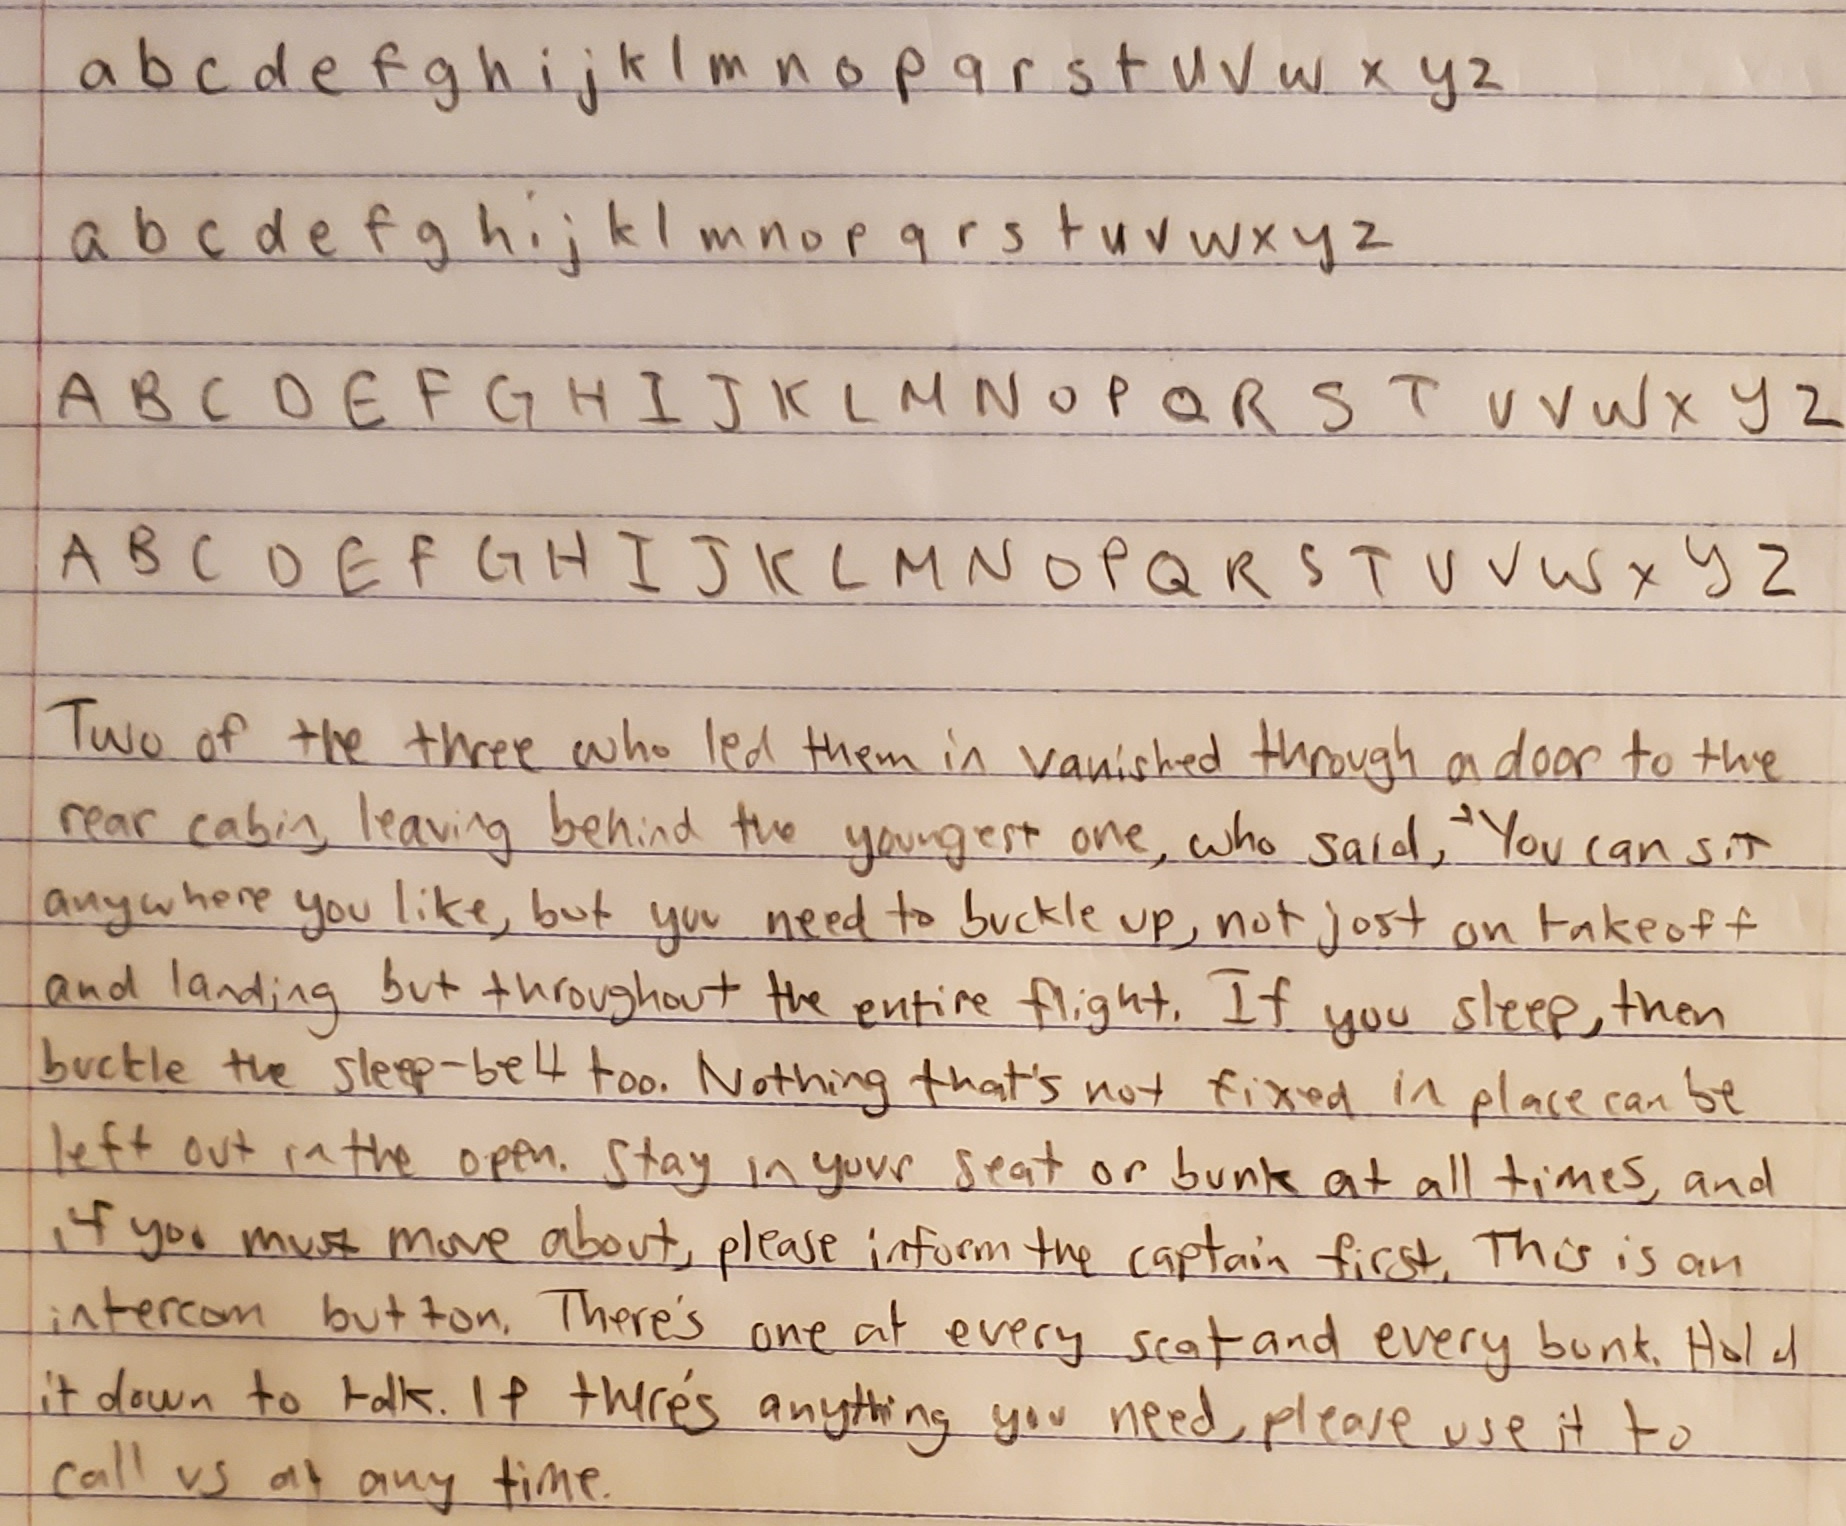 a b c d e f g h i j k l m n o p q r s t u v w x y z
a b c d e f g h i j k l m n o p q r s t u v w x y z
A B C D E F G H I J K L M N O P Q R S T U V W X Y Z
A B C D E F G H I J K L M N O P Q R S T U V W X Y Z
Two of the three who led them in vanished through a door to the
rear cabin, leaving behind the youngest one, who said, "You can sit
anywhere you like, but you need to buckle up, not just on takeoff
and landing but throughout the entire flight. If you sleep, then
buckle the sleep-belt too. Nothing that's not fixed in place can be
left out in the open. Stay in your seat or bunk at all times, and
if you must move about, please inform the captain first. This is an
intercom button. There's one at every seat and every bunk. Hold
it down to talk. If there's anything you need, please use it to
call us at any time.